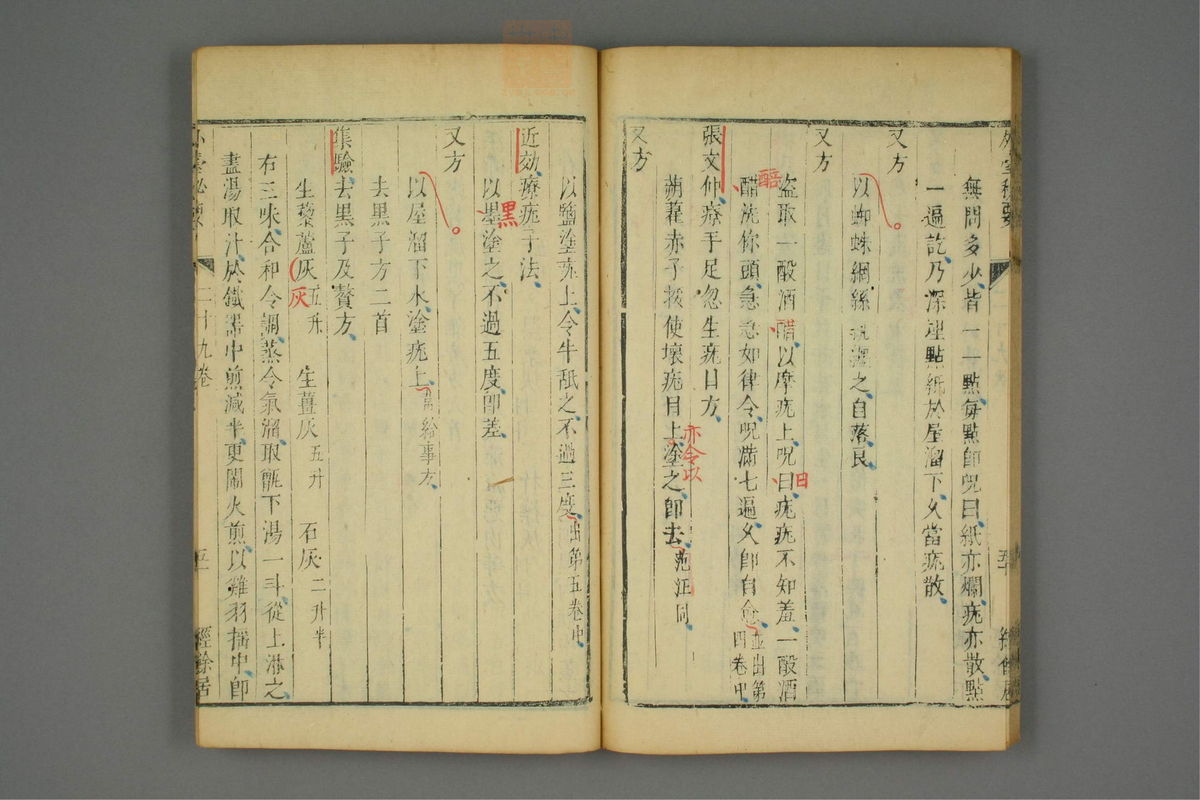 無問多少皆一一點每點卽呪曰紙亦爛疣亦散點
一遍訖乃深埋點紙於屋溜下久當疣散
又方
以蜘蛛網絲繞纏之自落良
又方
盜取一酘酒醋以摩疣上呪曰疣疣不知羞一酘酒
曰
醋洗你頭急急如律令呪滿七遍久卽自愈並出第四卷中
醅
張文仲療手足忽生疣目方
蒴藋赤子挼使壞疣目上塗之卽去范汪同
亦令以
又方
以鹽塗疣上令牛舐之不過三度出第五卷中
近効療疣子法
以墨塗之不過五度卽差
黑
又方
以屋溜下水塗疣上蕭給事方
去黑子方二首
集驗去黑子及贅方
生藜蘆灰五升 生薑灰五升 石灰二升半
灰
右三味合和令調蒸令氣溜取甑下湯一斗從上淋之
盡湯取汁於鐵器中煎減半更闇火煎以雞羽搵中卽
外臺秘要 二十九卷 經餘居